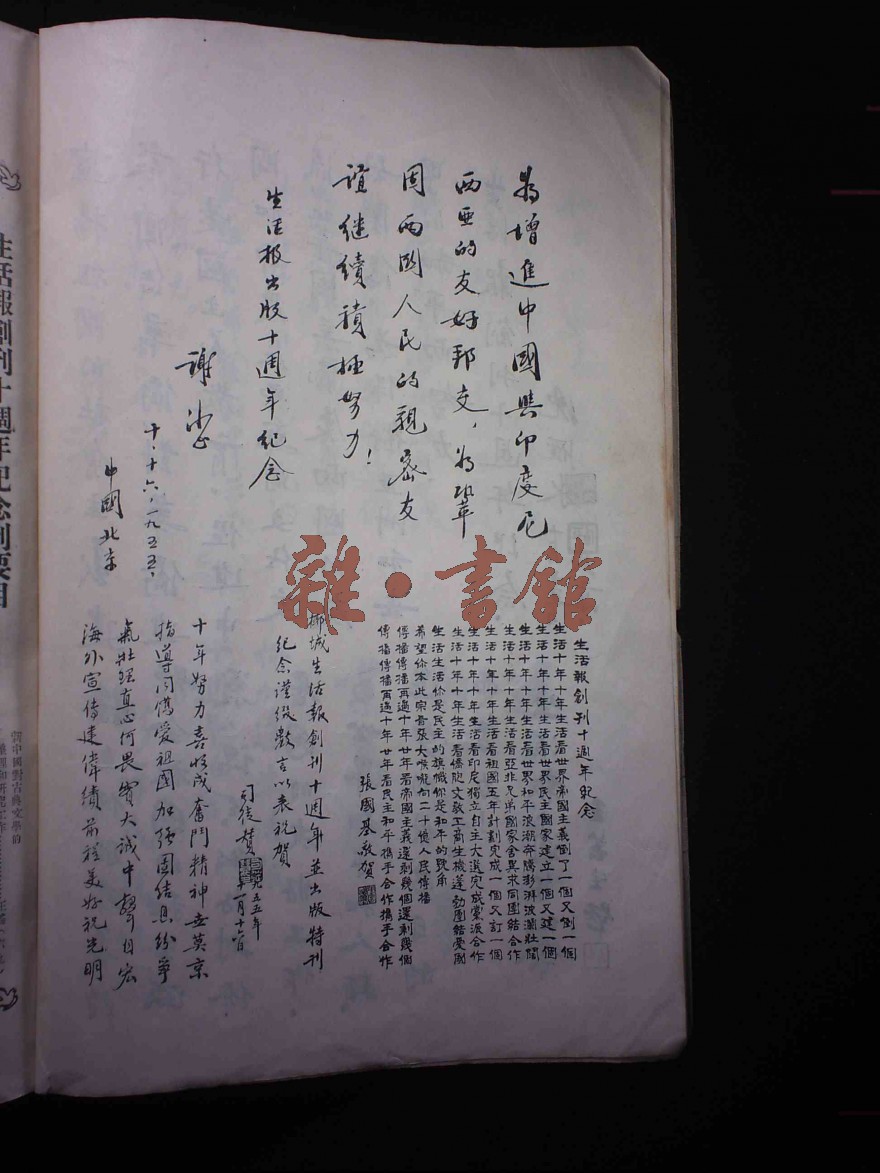 為增進中國與印度尼
西亞的友好邦交，為鞏
固兩國人民的親密友
誼繼續積極努力！
生活報出版十週年紀念
謝
十·十六·一九五五·
中國北京
雜·書館
生活報創刊十週年紀念
生活十年十年生活看世界帝國主義倒了一個又倒一個
生活十年十年生活看世界民主國家建立一個又建一個
生活十年十年生活看世界和平浪潮奔騰澎湃波瀾壯闊
生活十年十年生活看亞非兄弟國家會異求同團結合作
生活十年十年生活看祖國五年計劃完成一個又訂一個
生活十年十年生活看印尼獨立自主大選完成黨派合作
生活十年十年生活看僑胞文教工商生機蓬勃團結愛國
生活生活你是民主的旗幟你是和平的號角
希望你本此宗旨張大喉嚨向二十億人民傳播
傳播傳播再過十年廿年看帝國主義還剩幾個還剩幾個
傳播傳播再過十年廿年看民主和平携手合作携手合作
張國基敬賀
椰城生活報創刊十週年並出版特刊
紀念謹綴數言以表祝賀
司徒贊
一九五五年
十一月十六日
十年努力喜收成奮鬥精神世莫京
指導同僑愛祖國加強團結息紛爭
氣壯理直心何畏實大誠中聲自宏
海外宣傳建偉績前程美好祝光明
生活報創刊十週年紀念刊要目